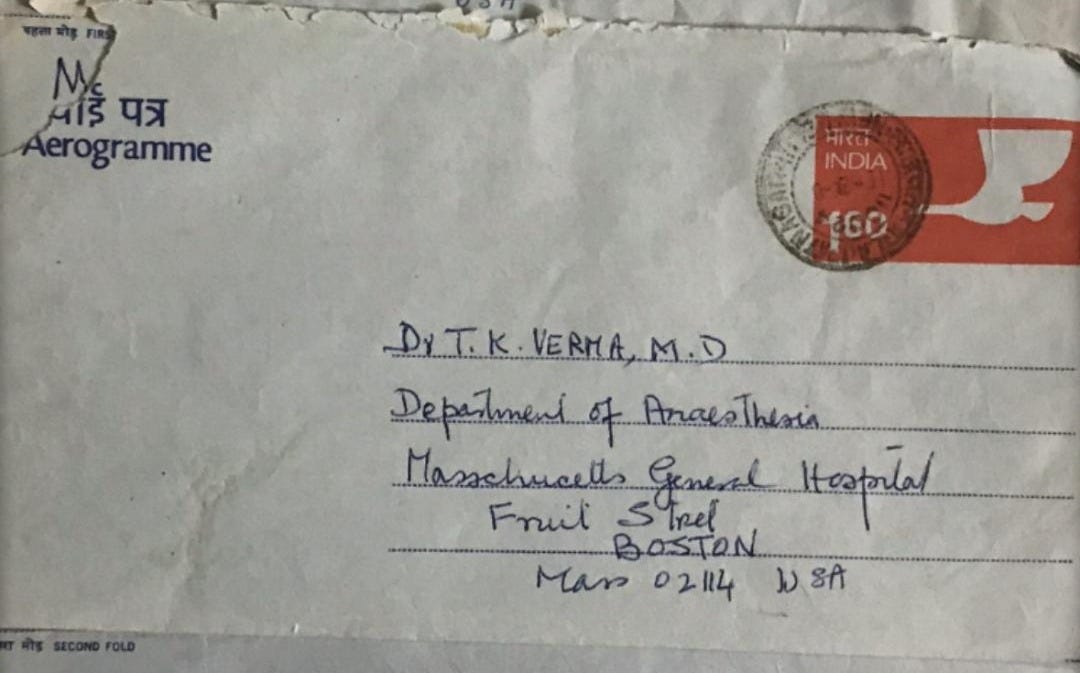 USA
पहला मोड़ FIRS
भारत
INDIA
160
पत्र
Aerogramme
Dr T. K. VERMA, M.D
Department of Anaesthesia
Masschucetts General Hospital
Fruit Street
BOSTON
Mass 02114 USA
मोड़ SECOND FOLD